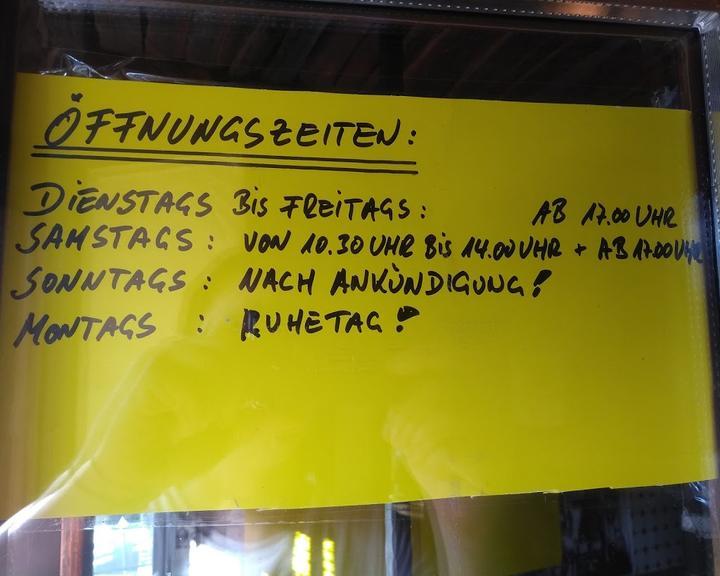 ÖFFNUNGSZEITEN:
DIENSTAGS BIS FREITAGS: AB 17.00 UHR
SAMSTAGS: VON 10.30 UHR BIS 14.00 UHR + AB 17.00 UHR
SONNTAGS: NACH ANKÜNDIGUNG!
MONTAGS : RUHETAG!